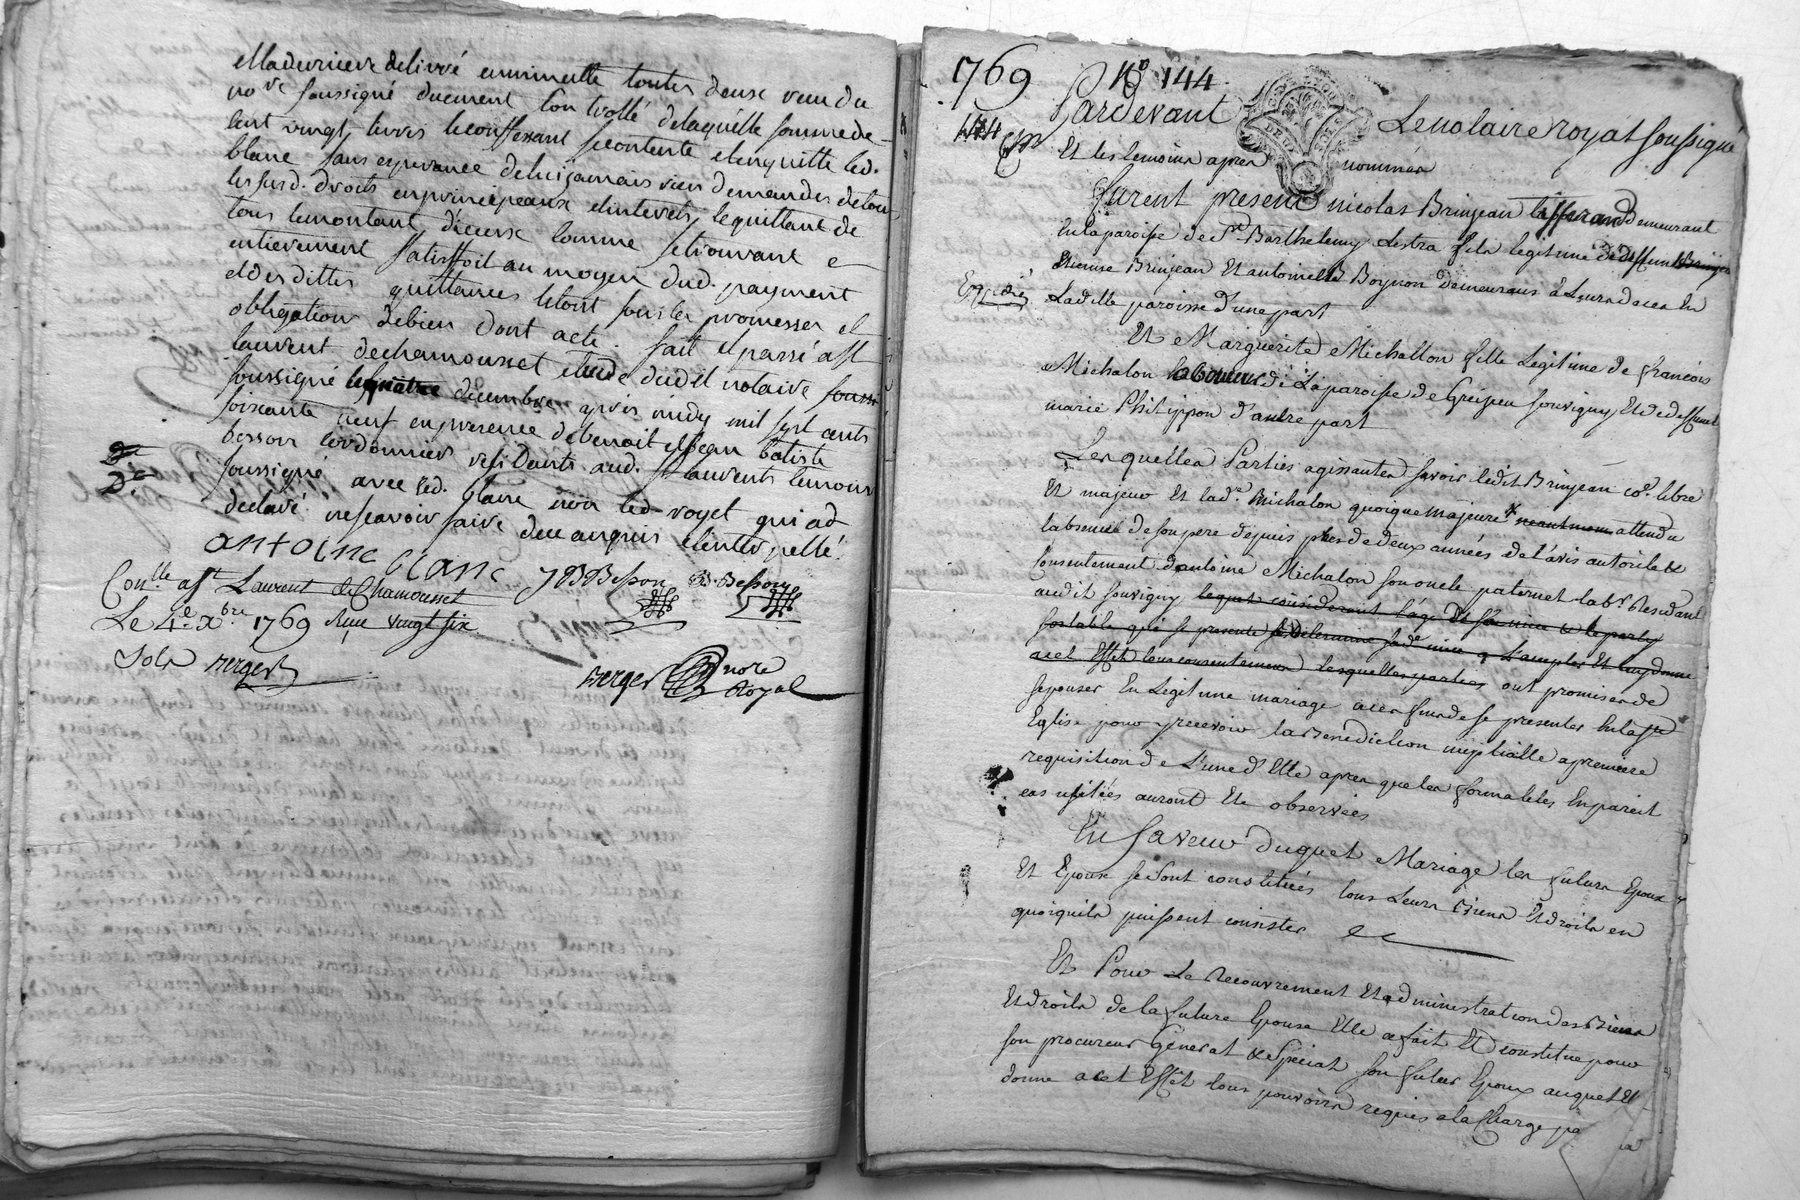 et la derniere delivré en minutte toutes deux veu du
no.re soussigné duement controllé de laquelle somme de
cent vingt livres le confessant se contente et en quitte led.
blanc sans esperance de luy jamais rien demander de tous
les susd. droits en principeaux et interets, le quittant de
tous le montant d'iceux comme se trouvant
entierement satisffoit au moyen dud. payment
et des dittes quittances le tout sous les promesses et
obligations de bien dont acte. fait et passé a St
laurent de chamousset etude dudit notaire sous
soussigné le quatre decembre après midy mil sept cents
soixante neuf en presence de benoit et Jean batiste
besson cordonnier residants aud. St laurents temoins
soussigné avec led. blanc non led. voyet qui a d
declaré ne scavoir faire de ce enquis et interpellé.
antoine blanc J B Besson B. Besson
Con.lle a St Laurent de Chamousset
Le 4.e X.bre 1769 Reçu vingt six
Sols Berger
Berger no.re Royal
1769 N.o 144
144
Pardevant Le notaire royal soussigné
Et les temoins apres nommés
furent presens nicolas Brinjean demeurant
en la paroisse de St. Barthelemy Lestra fils legitime de deffunt
Etienne Brinjean Et antoinette Boynon demeurans
Expedié
Ladite paroisse d'une part
Et Marguerite Michallon fille Legitime de françois
Michalon laboureur de La paroisse de Grezieu souvigny, Et de deffunte
marie Philippon d'autre part
Lesquelles Parties agissantes savoir ledit Brinjean co.e libre
Et majeur Et lad.e Michalon quoique majeure neantmoins attendu
l'absence de son pere depuis plus de deux années de l'avis autorité &
Consentement d'antoine Michalon son oncle paternel lab.r Residant
audit souvigny lequel considerant l'age de sa niece & le party
sortable qui se presente
a cet Effet tous consentement Lesquelles parties ont promis de
s'epouser En Legitime mariage a ces fins de se presenter En la ste
Eglise pour y recevoir la Benediction nuptialle a premiere
requisition de L'une d'Elle apres que les formalités En pareil
cas usitées auront Eté observées
En faveur duquel Mariage les futurs Epoux
Et Epouse se sont constitués tous Leurs Biens Et droits en
quoiquils puissent consister
Et Pour Le Recouvrement Et administration des Biens
Et droits de la future Epouse Elle a fait Et constitue pour
son procureur General & Special son futur Epoux auquel El
donne a cet Effet tous pouvoirs requis a la Charge pa